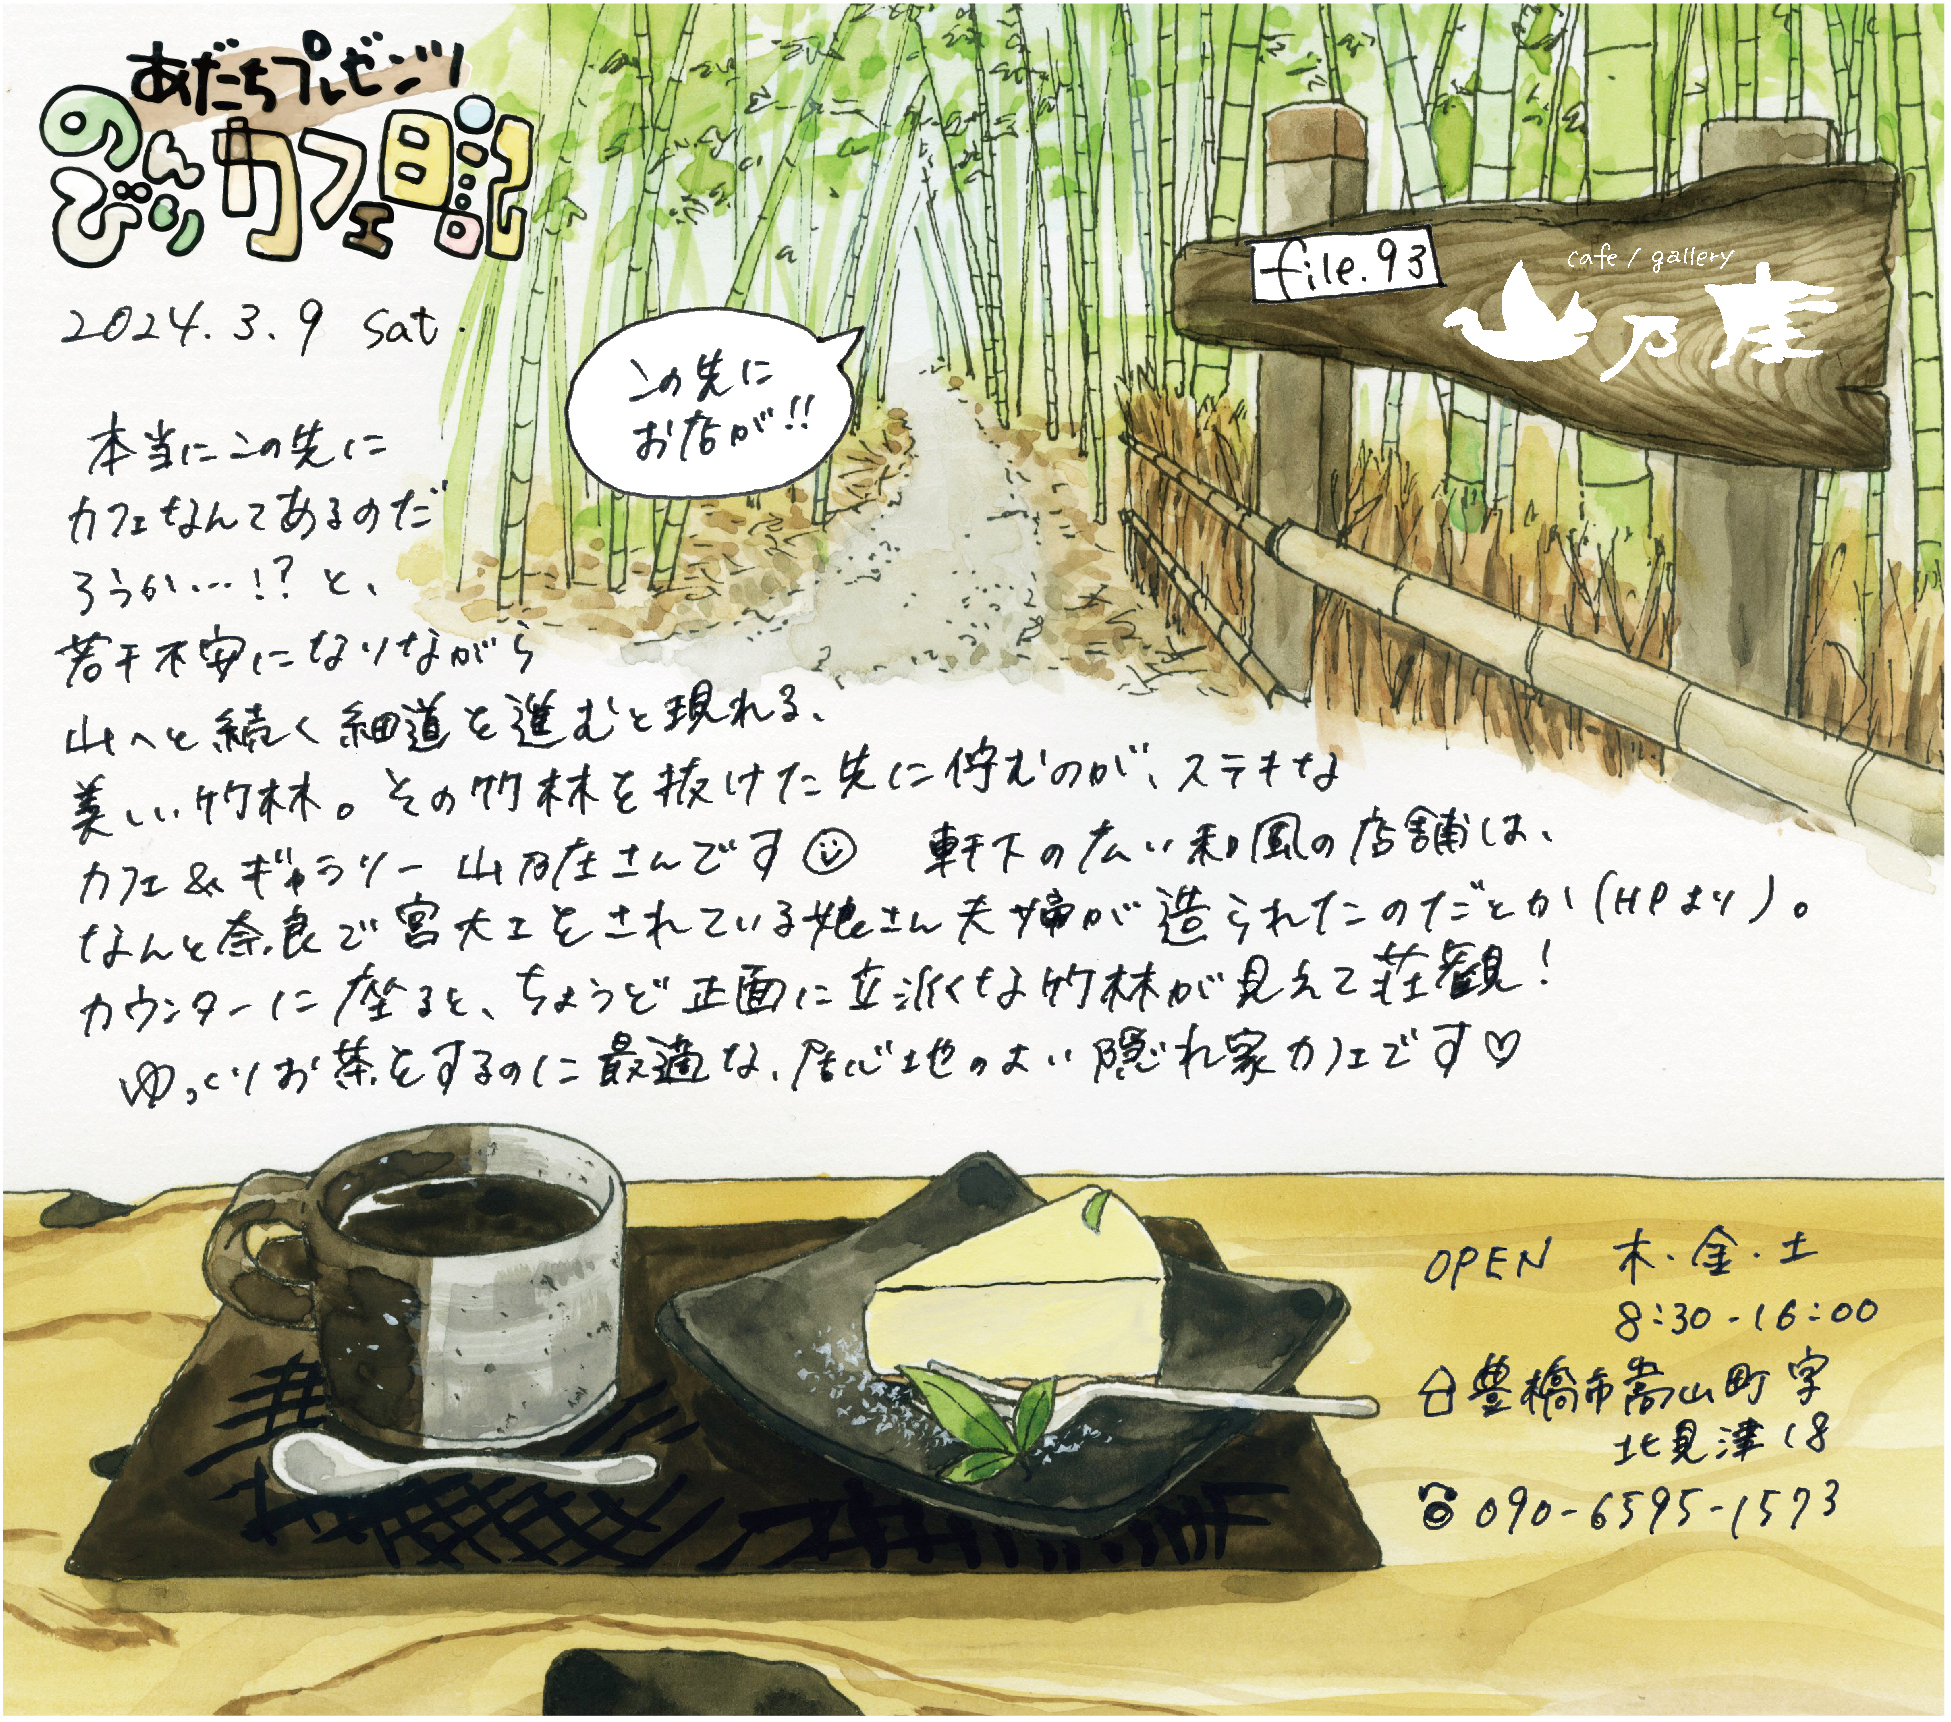 あだちプレゼンツ
のんびり カフェ日記
2024.3.9 sat.
file.93
cafe / gallery
山乃庄
この先に
お店が!!
本当にこの先に
カフェなんてあるのだ
ろうか…!?と、
若干不安になりながら
山へと続く細道を進むと現れる、
美しい竹林。その竹林を抜けた先に佇むのが、ステキな
カフェ&ギャラリー 山乃庄さんです 軒下の広い和風の店舗は、
なんと奈良で宮大工をされている娘さん夫婦が造られたのだとか(HPより)。
カウンターに座ると、ちょうど正面に立派な竹林が見えて荘観!
ゆっくりお茶をするのに最適な、居心地のよい隠れ家カフェです♡
OPEN 木・金・土
8:30-16:00
豊橋市嵩山町字
北見津18
090-6595-1573